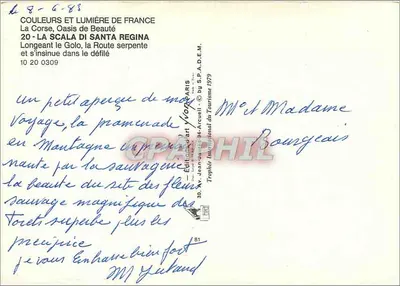 le 8-6-83
COULEURS ET LUMIÈRE DE FRANCE
La Corse, Oasis de Beauté
20 - LA SCALA DI SANTA REGINA
Longeant le Golo, la Route serpente
et s'insinue dans le défilé
10 20 0309
un petit aperçu de mon
voyage, la promenade
en Montagne
nante par la sauvagene
la beauté du site des fleurs
sauvage magnifique des
forets superbe plus les
precipice
je vous Embrasse bien fort
M
Mr et Madame
Bourgeois
Editions d'art Yvon, PARIS
© by S.P.A.D.E.M.
du Tourisme 1979
CPAPHIL